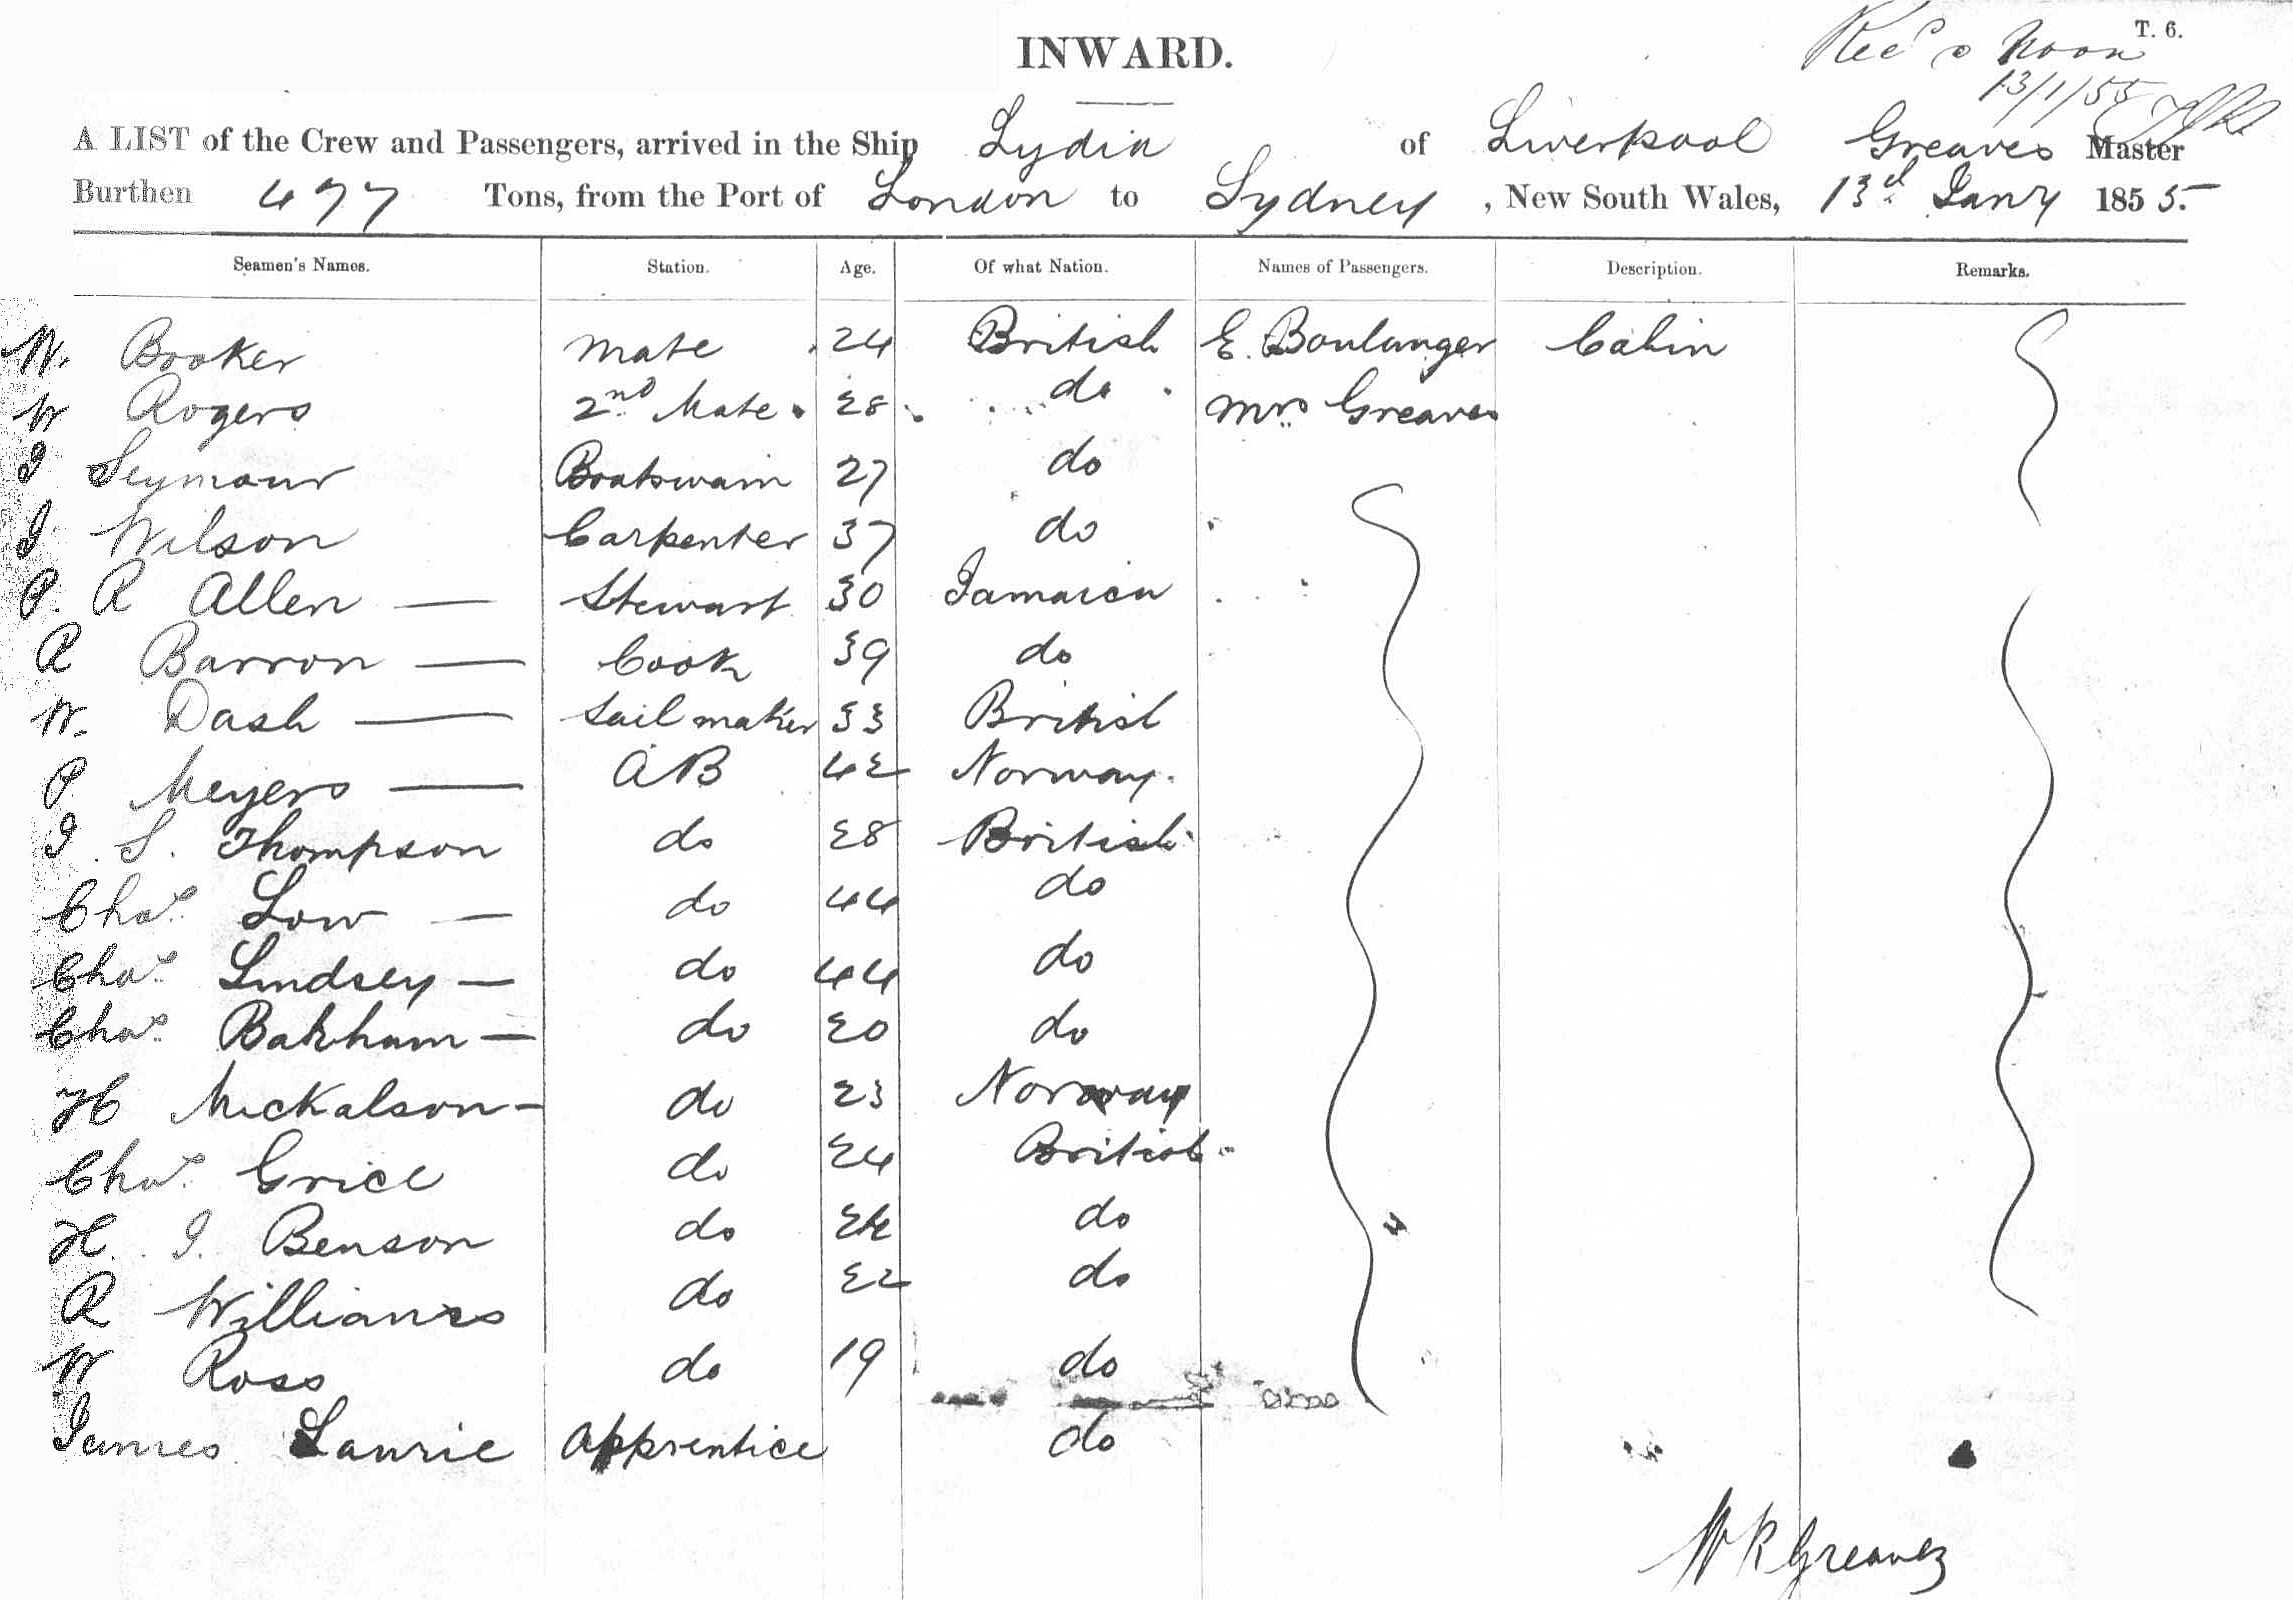 T. 6.
INWARD.
Recd @ Noon
13/1/55
A LIST of the Crew and Passengers, arrived in the Ship Lydia of Liverpool Greaves Master
Burthen 477 Tons, from the Port of London to Sydney , New South Wales, 13d Jany 1855.
Seamen's Names. Station. Age. Of what Nation. Names of Passengers. Description. Remarks.
W. Booker Mate 24 British E. Boulanger Cabin
W Rogers 2nd Mate 28 do Mrs Greaves
J Seymour Boatswain 27 do
J Wilson Carpenter 37 do
P. R Allen — Stewart 30 Jamaica
R Barron — Cook 39 do
W. Dash — Sail maker 33 British
P Meyers — AB 42 Norway.
J. S. Thompson do 28 British
Chas. Low — do 44 do
Chas. Lindsey — do 44 do
Chas. — do 20 do
H Mickalson - do 23 Norway
Chas. Grice do 24 British
H. J. Benson do do
R Williams do 22 do
W Ross do 19 do
James Laurie Apprentice do
W R Greaves